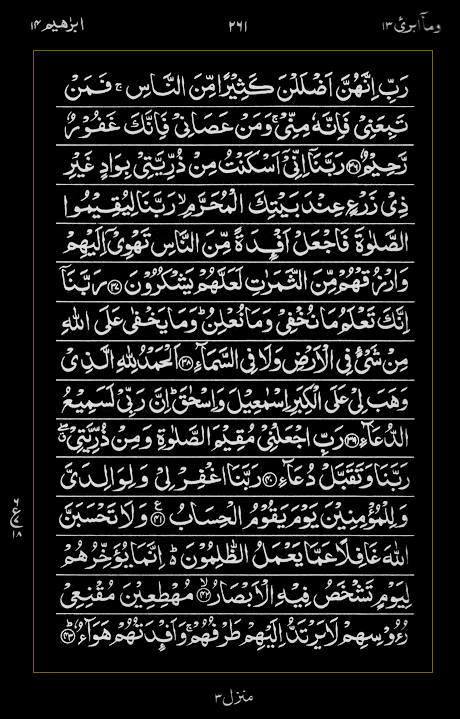 ابرٰهيم ١٤ ٢٦١ ومآ ابرئ ١٣
رَبِّ اِنَّهُنَّ اَضْلَلْنَ كَثِيْرًا مِّنَ النَّاسِ ۚ فَمَنْ
تَبِعَنِيْ فَاِنَّهٗ مِنِّيْ ۚ وَمَنْ عَصَانِيْ فَاِنَّكَ غَفُوْرٌ
رَّحِيْمٌ ﴿٣٦﴾ رَبَّنَاۤ اِنِّيْۤ اَسْكَنْتُ مِنْ ذُرِّيَّتِيْ بِوَادٍ غَيْرِ
ذِيْ زَرْعٍ عِنْدَ بَيْتِكَ الْمُحَرَّمِ ۙ رَبَّنَا لِيُقِيْمُوا
الصَّلٰوةَ فَاجْعَلْ اَفْـِٕدَةً مِّنَ النَّاسِ تَهْوِيْۤ اِلَيْهِمْ
وَارْزُقْهُمْ مِّنَ الثَّمَرٰتِ لَعَلَّهُمْ يَشْكُرُوْنَ ﴿٣٧﴾ رَبَّنَاۤ
اِنَّكَ تَعْلَمُ مَا نُخْفِيْ وَمَا نُعْلِنُ ؕ وَمَا يَخْفٰى عَلَى اللهِ
مِنْ شَيْءٍ فِي الْاَرْضِ وَلَا فِي السَّمَآءِ ﴿٣٨﴾ اَلْحَمْدُ لِلّٰهِ الَّذِيْ
وَهَبَ لِيْ عَلَى الْكِبَرِ اِسْمٰعِيْلَ وَاِسْحٰقَ ؕ اِنَّ رَبِّيْ لَسَمِيْعُ
الدُّعَآءِ ﴿٣٩﴾ رَبِّ اجْعَلْنِيْ مُقِيْمَ الصَّلٰوةِ وَمِنْ ذُرِّيَّتِيْ ۖ
رَبَّنَا وَتَقَبَّلْ دُعَآءِ ﴿٤٠﴾ رَبَّنَا اغْفِرْ لِيْ وَلِوَالِدَيَّ
وَلِلْمُؤْمِنِيْنَ يَوْمَ يَقُوْمُ الْحِسَابُ ﴿٤١﴾ وَلَا تَحْسَبَنَّ
٦ ع ١٨
اللهَ غَافِلًا عَمَّا يَعْمَلُ الظّٰلِمُوْنَ ؕ اِنَّمَا يُؤَخِّرُهُمْ
لِيَوْمٍ تَشْخَصُ فِيْهِ الْاَبْصَارُ ﴿٤٢﴾ مُهْطِعِيْنَ مُقْنِعِيْ
رُءُوْسِهِمْ لَا يَرْتَدُّ اِلَيْهِمْ طَرْفُهُمْ ۚ وَاَفْـِٕدَتُهُمْ هَوَآءٌ ﴿٤٣﴾
منزل ٣